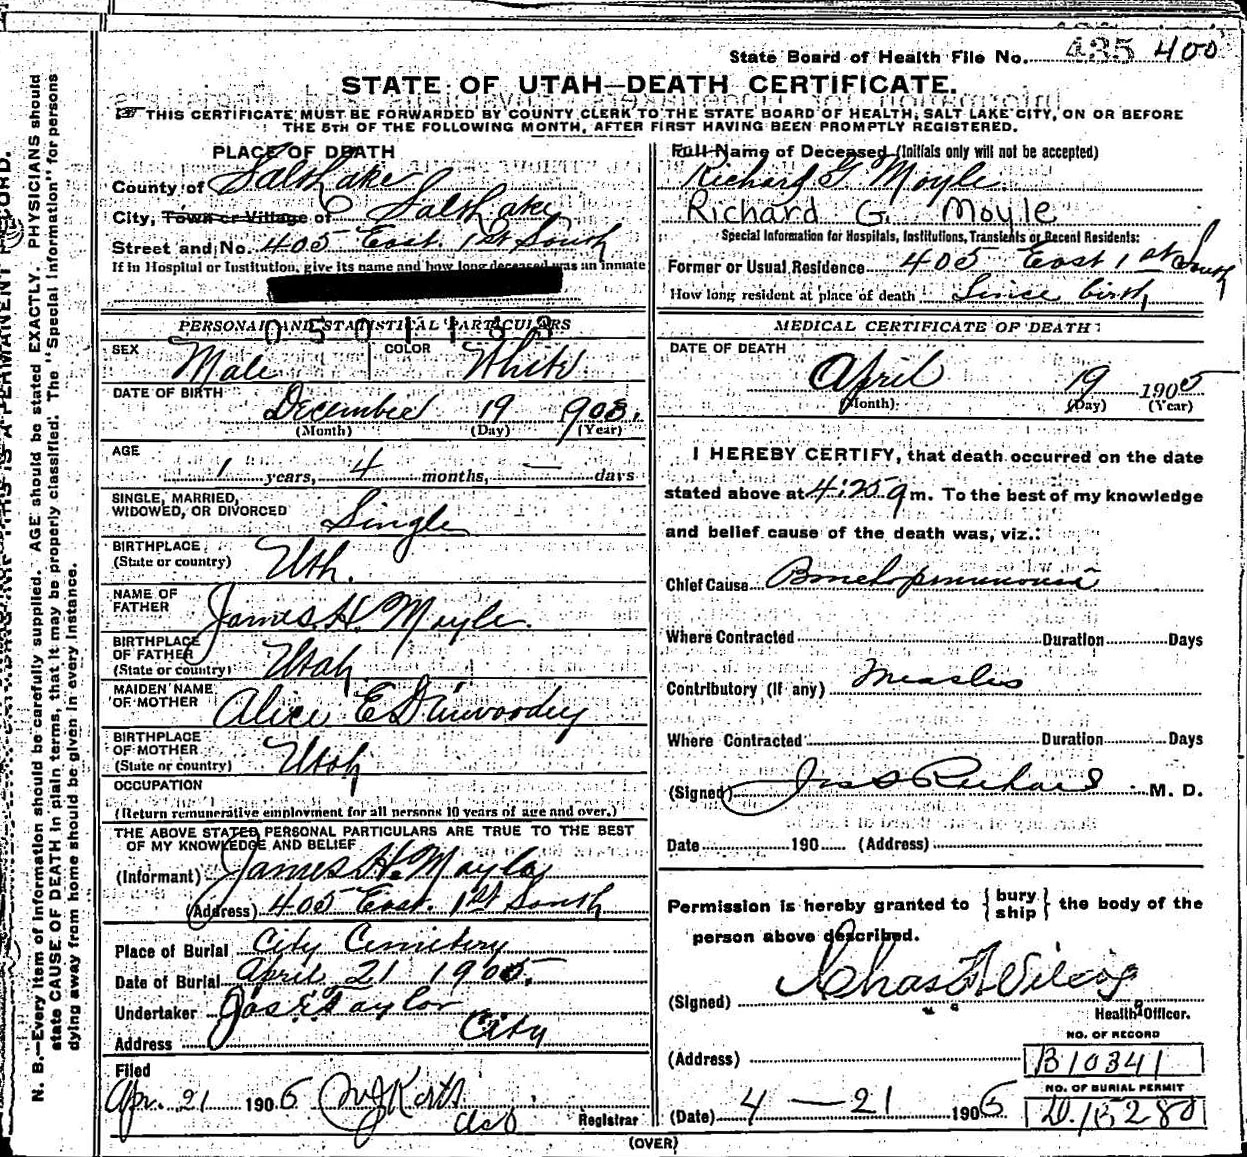 State Board of Health File No. 435 400
STATE OF UTAH—DEATH CERTIFICATE.
THIS CERTIFICATE MUST BE FORWARDED BY COUNTY CLERK TO THE STATE BOARD OF HEALTH, SALT LAKE CITY, ON OR BEFORE
THE 5TH OF THE FOLLOWING MONTH, AFTER FIRST HAVING BEEN PROMPTLY REGISTERED.
PLACE OF DEATH
County of Salt Lake
City, Town or Village of Salt Lake
Street and No. 405 East 1st South
If in Hospital or Institution, give its name and how long deceased was an inmate
PERSONAL AND STATISTICAL PARTICULARS
SEX Male COLOR White
DATE OF BIRTH
December 19 1903.
(Month) (Day) (Year)
AGE
1 years, 4 months, — days
SINGLE, MARRIED,
WIDOWED, OR DIVORCED Single
BIRTHPLACE
(State or country) Uth.
NAME OF
FATHER James H. Moyle.
BIRTHPLACE
OF FATHER
(State or country) Utah
MAIDEN NAME
OF MOTHER Alice E Dinwoodey
BIRTHPLACE
OF MOTHER
(State or country) Utah
OCCUPATION
(Return remunerative employment for all persons 10 years of age and over.)
THE ABOVE STATED PERSONAL PARTICULARS ARE TRUE TO THE BEST
OF MY KNOWLEDGE AND BELIEF
(Informant) James H. Moyle
(Address) 405 East. 1st South
Place of Burial City Cemetery
Date of Burial April 21 1905.
Undertaker Jos E Taylor
Address City
Filed
Apr. 21 1905
Registrar
Full Name of Deceased (Initials only will not be accepted)
Richard G Moyle
Richard G. Moyle
Special Information for Hospitals, Institutions, Transients or Recent Residents:
Former or Usual Residence 405 East 1st South
How long resident at place of death Since birth
MEDICAL CERTIFICATE OF DEATH
DATE OF DEATH
April 19 1905
(Month) (Day) (Year)
I HEREBY CERTIFY, that death occurred on the date
stated above at 4:25 a m. To the best of my knowledge
and belief cause of the death was, viz.:
Chief Cause Bronchopneumonia
Where Contracted Duration Days
Contributory (if any) Measles
Where Contracted Duration Days
(Signed) Jos S Richards M. D.
Date 190 (Address)
Permission is hereby granted to {bury ship} the body of the
person above described.
(Signed) Chas F Wilcox
Health Officer.
NO. OF RECORD
(Address) B10341
NO. OF BURIAL PERMIT
(Date) 4 — 21 1905 D.15280
(OVER)
N. B.—Every item of information should be carefully supplied. AGE should be stated EXACTLY. PHYSICIANS should
state CAUSE OF DEATH in plain terms, that it may be properly classified. The "Special Information" for persons
dying away from home should be given in every instance.